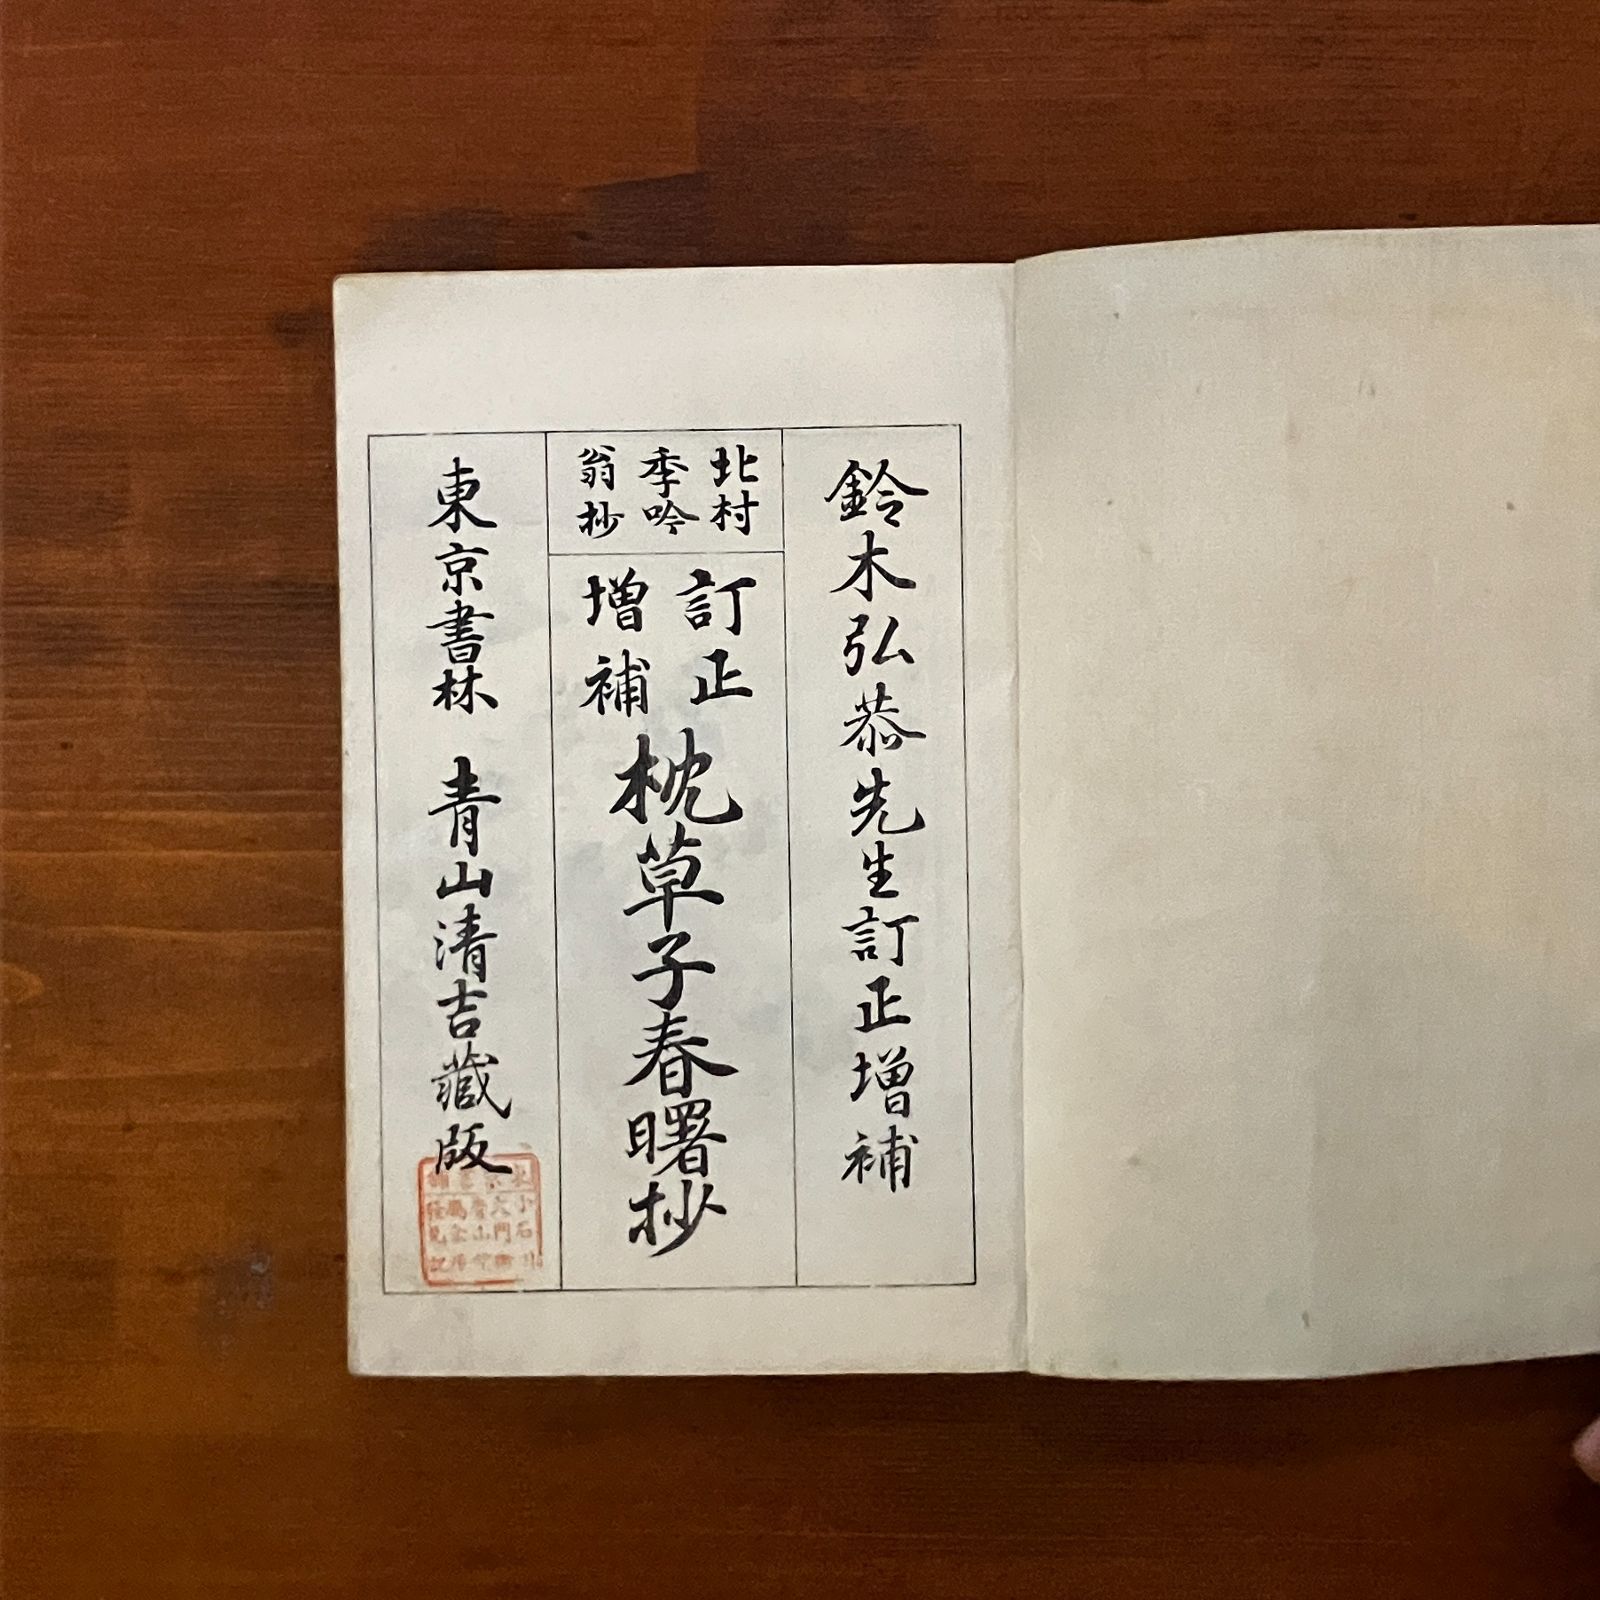 鈴木弘恭先生訂正増補
北村
季吟
翁抄
訂正
増補
枕草子春曙抄
東京書林 青山清吉藏版